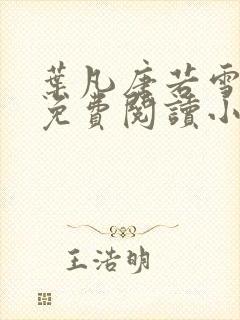 葉凡唐若雪
免費閱讀小
王浩明